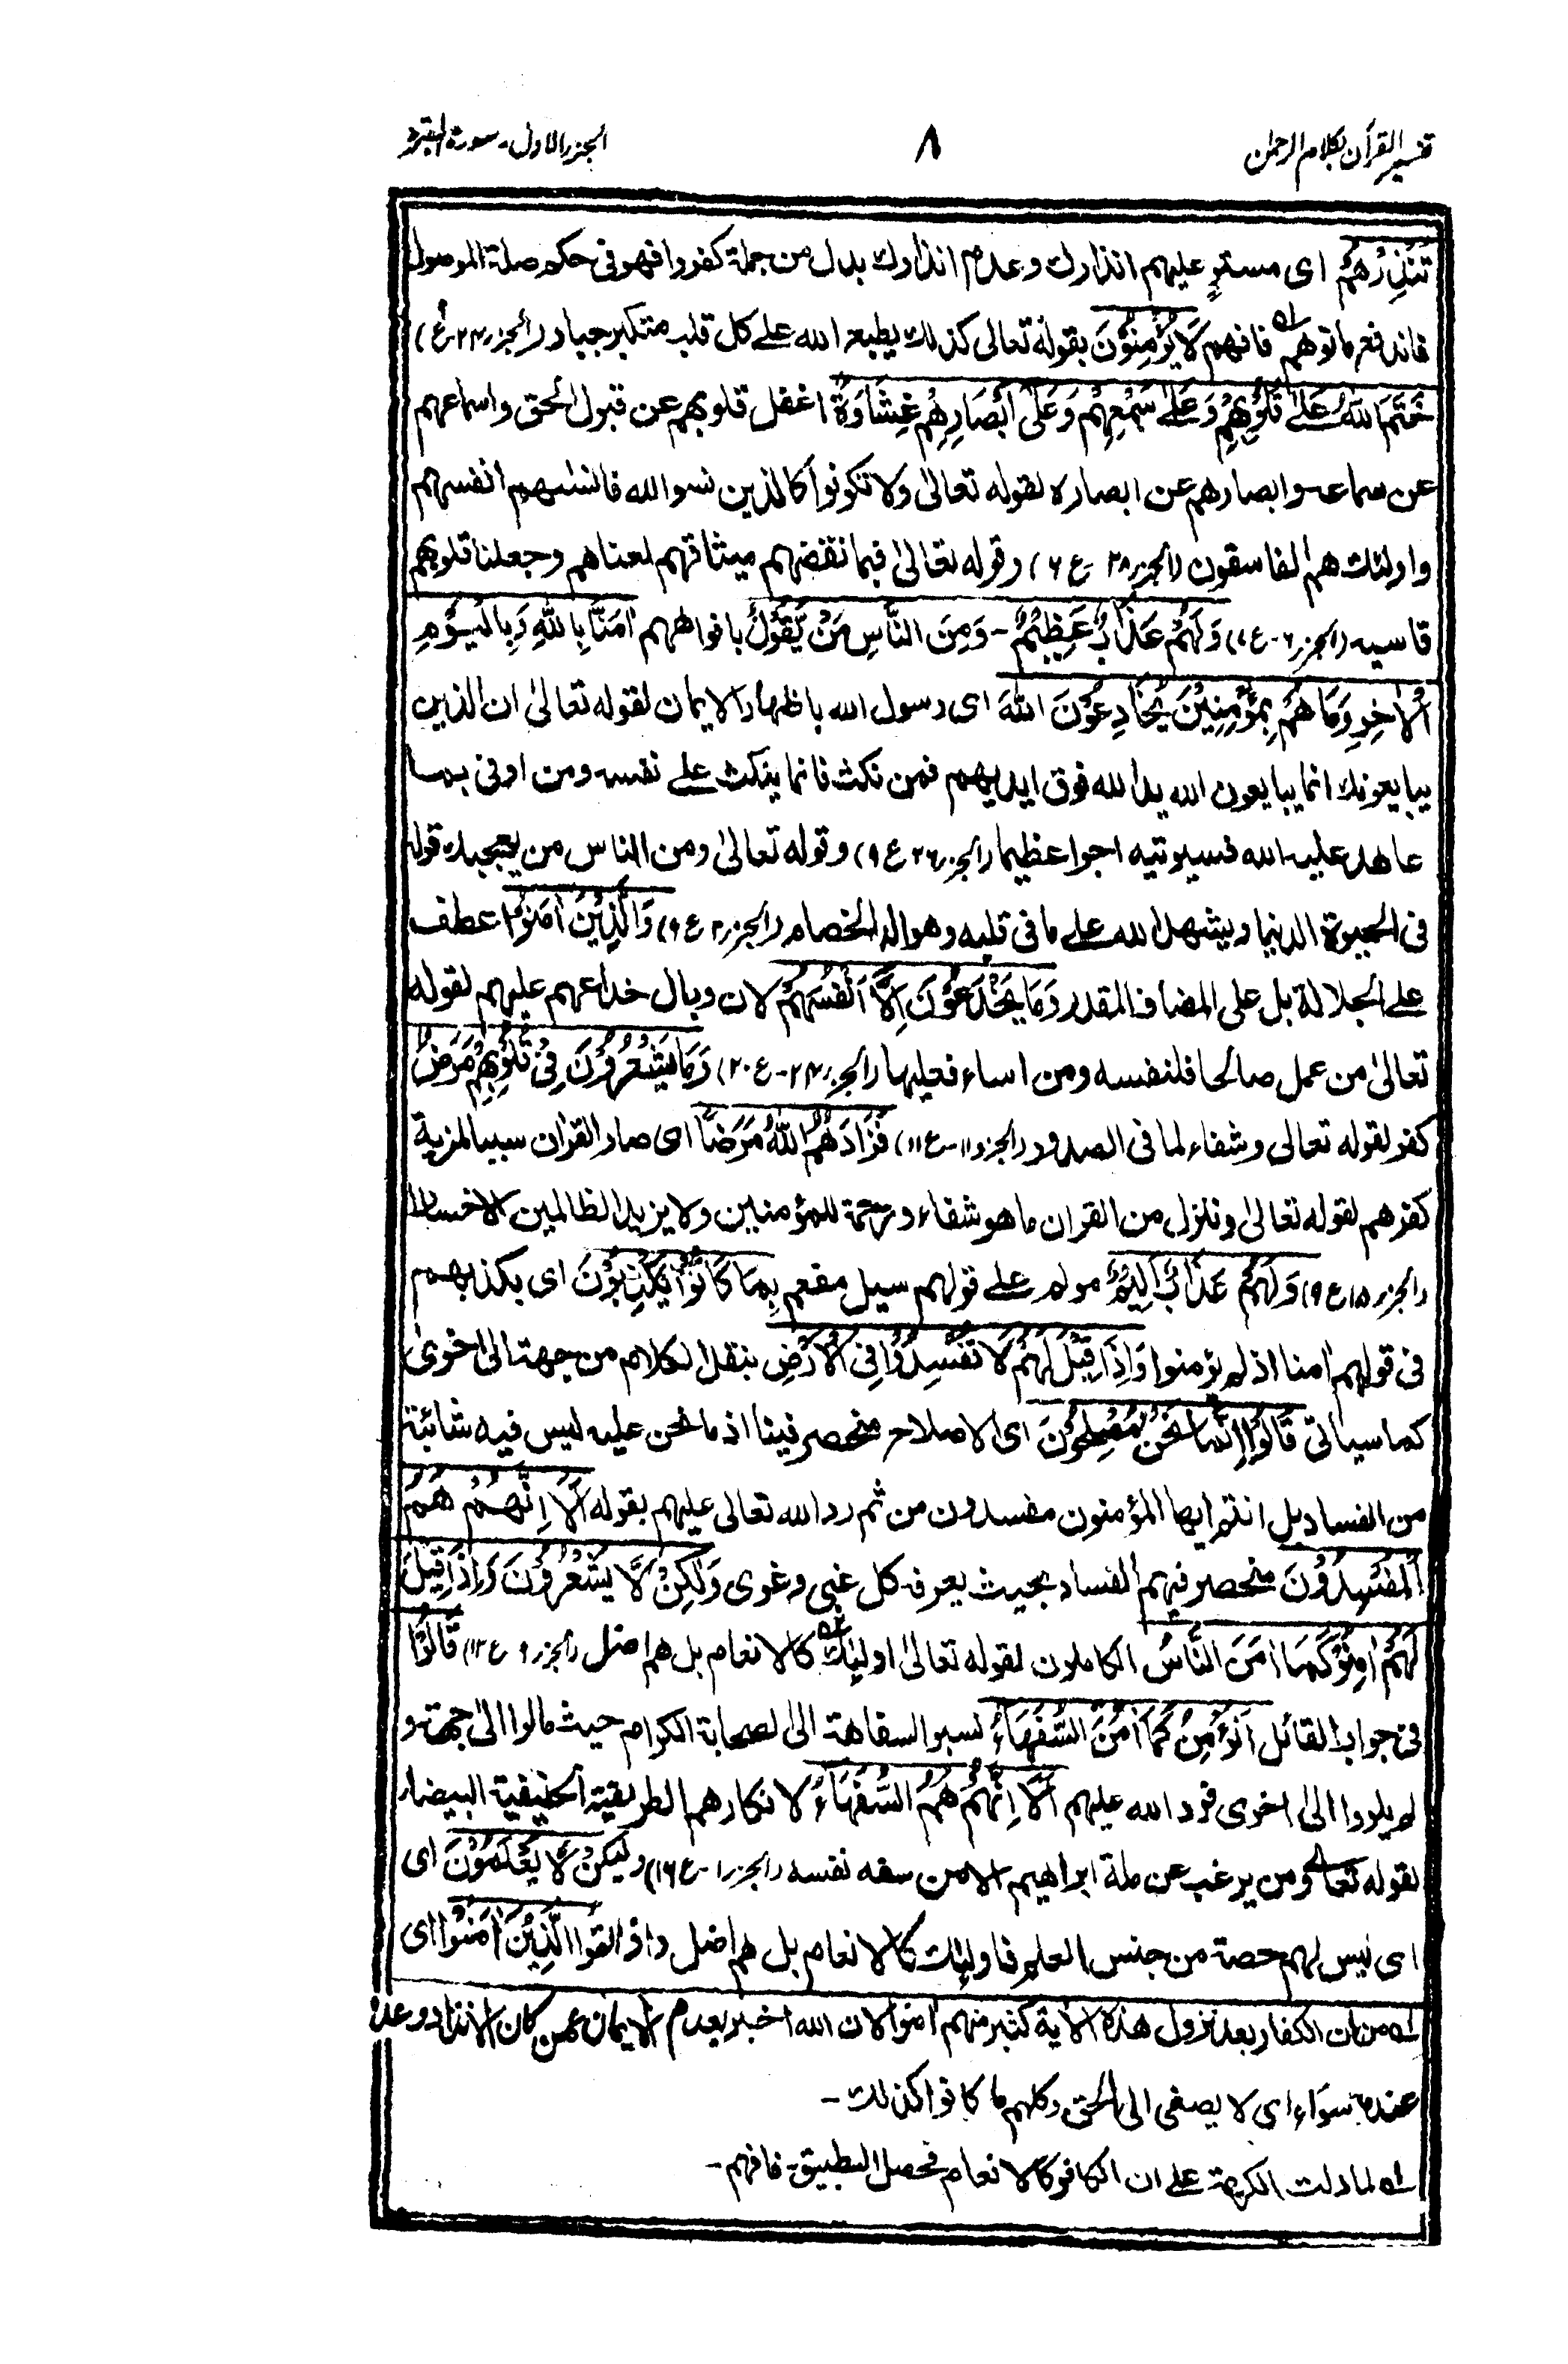 تفسير القرآن بكلام الرحمن
٨
الجزء الاول - سورة البقرة
تُنْذِرْهُمْ اى مستوٍ عليهم انذارك وعدم انذارك بدل من جملة كفروا فهو فى حكم صلة الموصول
فاندفع ما توهم فافهم لَا يُؤْمِنُوْنَ بقوله تعالى كذلك يطبع الله على كل قلب متكبر جبار (الجزء ٢٤-ع)
خَتَمَ اللّٰهُ عَلٰى قُلُوْبِهِمْ وَعَلٰى سَمْعِهِمْ وَعَلٰى اَبْصَارِهِمْ غِشَاوَةٌ اغفل قلوبهم عن قبول الحق واسماعهم
عن سماعه وابصارهم عن ابصاره لقوله تعالىٰ ولا تكونوا كالذين نسوا الله فانسٰىهم انفسهم
واولئك هم الفاسقون (الجزء ٢٨ - ع ٦) وقوله تعالىٰ فبما نقضهم ميثاقهم لعناهم وجعلنا قلوبهم
قاسيه (الجزء ٦ - ع ٧) وَلَهُمْ عَذَابٌ عَظِيْمٌ - وَمِنَ النَّاسِ مَنْ يَّقُوْلُ بافواههم اٰمَنَّا بِاللّٰهِ وَبِالْيَوْمِ
الْاٰخِرِ وَمَا هُمْ بِمُؤْمِنِيْنَ يُخَادِعُوْنَ اللّٰهَ اى رسول الله باظهار الايمان لقوله تعالىٰ ان الذين
يبايعونك انما يبايعون الله يد الله فوق ايديهم فمن نكث فانما ينكث على نفسه ومن اوفى بما
عاهد عليه الله فسيوتيه اجرا عظيما (الجزء ٢٦ ع ٩) وقوله تعالىٰ ومن الناس من يعجبك قوله
فى الحيوة الدنيا ويشهد الله على ما فى قلبه وهو الد الخصام (الجزء ٢ ع ٩) وَالَّذِيْنَ اٰمَنُوْا عطف
على الجلالة بل على المضاف المقدر وَمَا يَخْدَعُوْنَ اِلَّا اَنْفُسَهُمْ لان وبال خداعهم عليهم لقوله
تعالىٰ من عمل صالحا فلنفسه ومن اساء فعليها (الجزء ٢٤ - ع ٢٠) وَمَا يَشْعُرُوْنَ فِىْ قُلُوْبِهِمْ مَرَضٌ
كفر لقوله تعالى وشفاء لما فى الصدور (الجزء ١١ - ع ١١) فَزَادَهُمُ اللّٰهُ مَرَضًا اى صار القران سببا لمزية
كفرهم لقوله تعالىٰ وننزل من القران ما هو شفاء ورحمة للمؤمنين ولا يزيد الظالمين الا خسارا
(الجزء ١٥ ع ٩) وَلَهُمْ عَذَابٌ اَلِيْمٌ مولم على قولهم سيل مفعم بِمَا كَانُوْا يَكْذِبُوْنَ اى بكذبهم
فى قولهم اٰمنا اذ لم يؤمنوا وَاِذَا قِيْلَ لَهُمْ لَا تُفْسِدُوْا فِى الْاَرْضِ بنقل الكلام من جهة الىٰ اخرى
كما سياتى قَالُوْا اِنَّمَا نَحْنُ مُصْلِحُوْنَ اى الاصلاح منحصر فينا اذ ما نحن عليه ليس فيه شائبة
من الفساد بل انتم ايها المؤمنون مفسدون من ثم رد الله تعالى عليهم بقوله اَلَا اِنَّهُمْ هُمُ
الْمُفْسِدُوْنَ منحصر فيهم الفساد بحيث يعرفه كل غبى وغوى وَلٰكِنْ لَّا يَشْعُرُوْنَ وَاِذَا قِيْلَ
لَهُمْ اٰمِنُوْا كَمَا اٰمَنَ النَّاسُ الكاملون لقوله تعالىٰ اولئك كالانعام بل هم اضل (الجزء ٩ ع ١٢) قَالُوْا
فى جواب القائل اَنُؤْمِنُ كَمَا اٰمَنَ السُّفَهَاءُ نسبوا السفاهة الى الصحابة الكرام حيث مالوا الىٰ جهة و
لم يلووا الىٰ اخرى فرد الله عليهم اَلَا اِنَّهُمْ هُمُ السُّفَهَاءُ لانكارهم الطريقية الحنيفية البيضاء
لقوله تعالى ومن يرغب عن ملة ابراهيم الا من سفه نفسه (الجزء ١ - ع ١٦) وَلٰكِنْ لَّا يَعْلَمُوْنَ اى
اى ليس لهم حصة من جنس العلم فاولئك كالانعام بل هم اضل واذا لقوا الَّذِيْنَ اٰمَنُوْا اى
له من ان الكفار بعد نزول هذه الاٰية كثير منهم اٰمنوا لان الله اخبر بعدم الايمان عمن كان الانذار وعدمه
عنده سواء اى لا يصغى الى الحق وكلهم ما كانوا كذلك -
له لما دلت الكريمة على ان الكافر كالانعام فحصل التطبيق - فافهم -